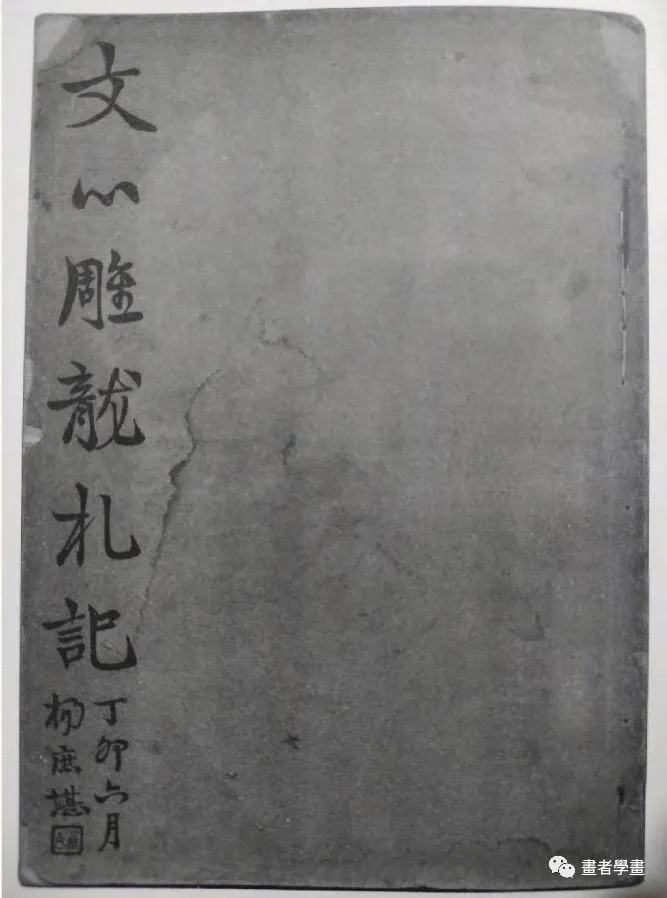 文心雕龍札記
丁卯六月
楊庶堪
畫者學畫